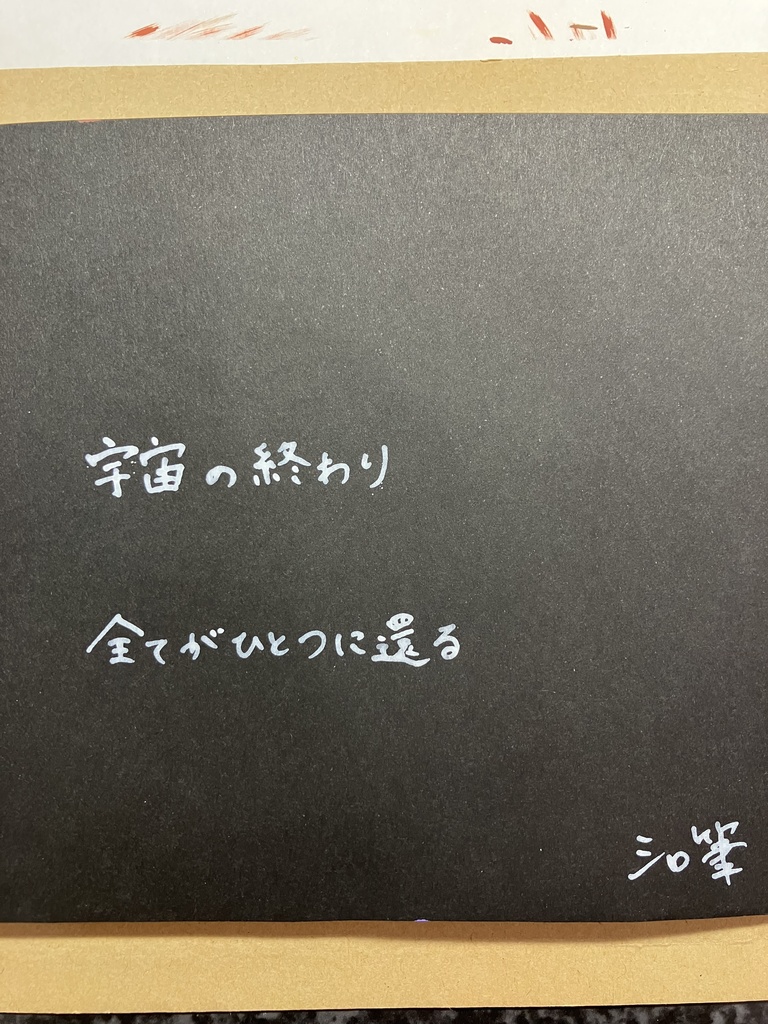 宇宙の終わり
全てがひとつに還る
シロ筆